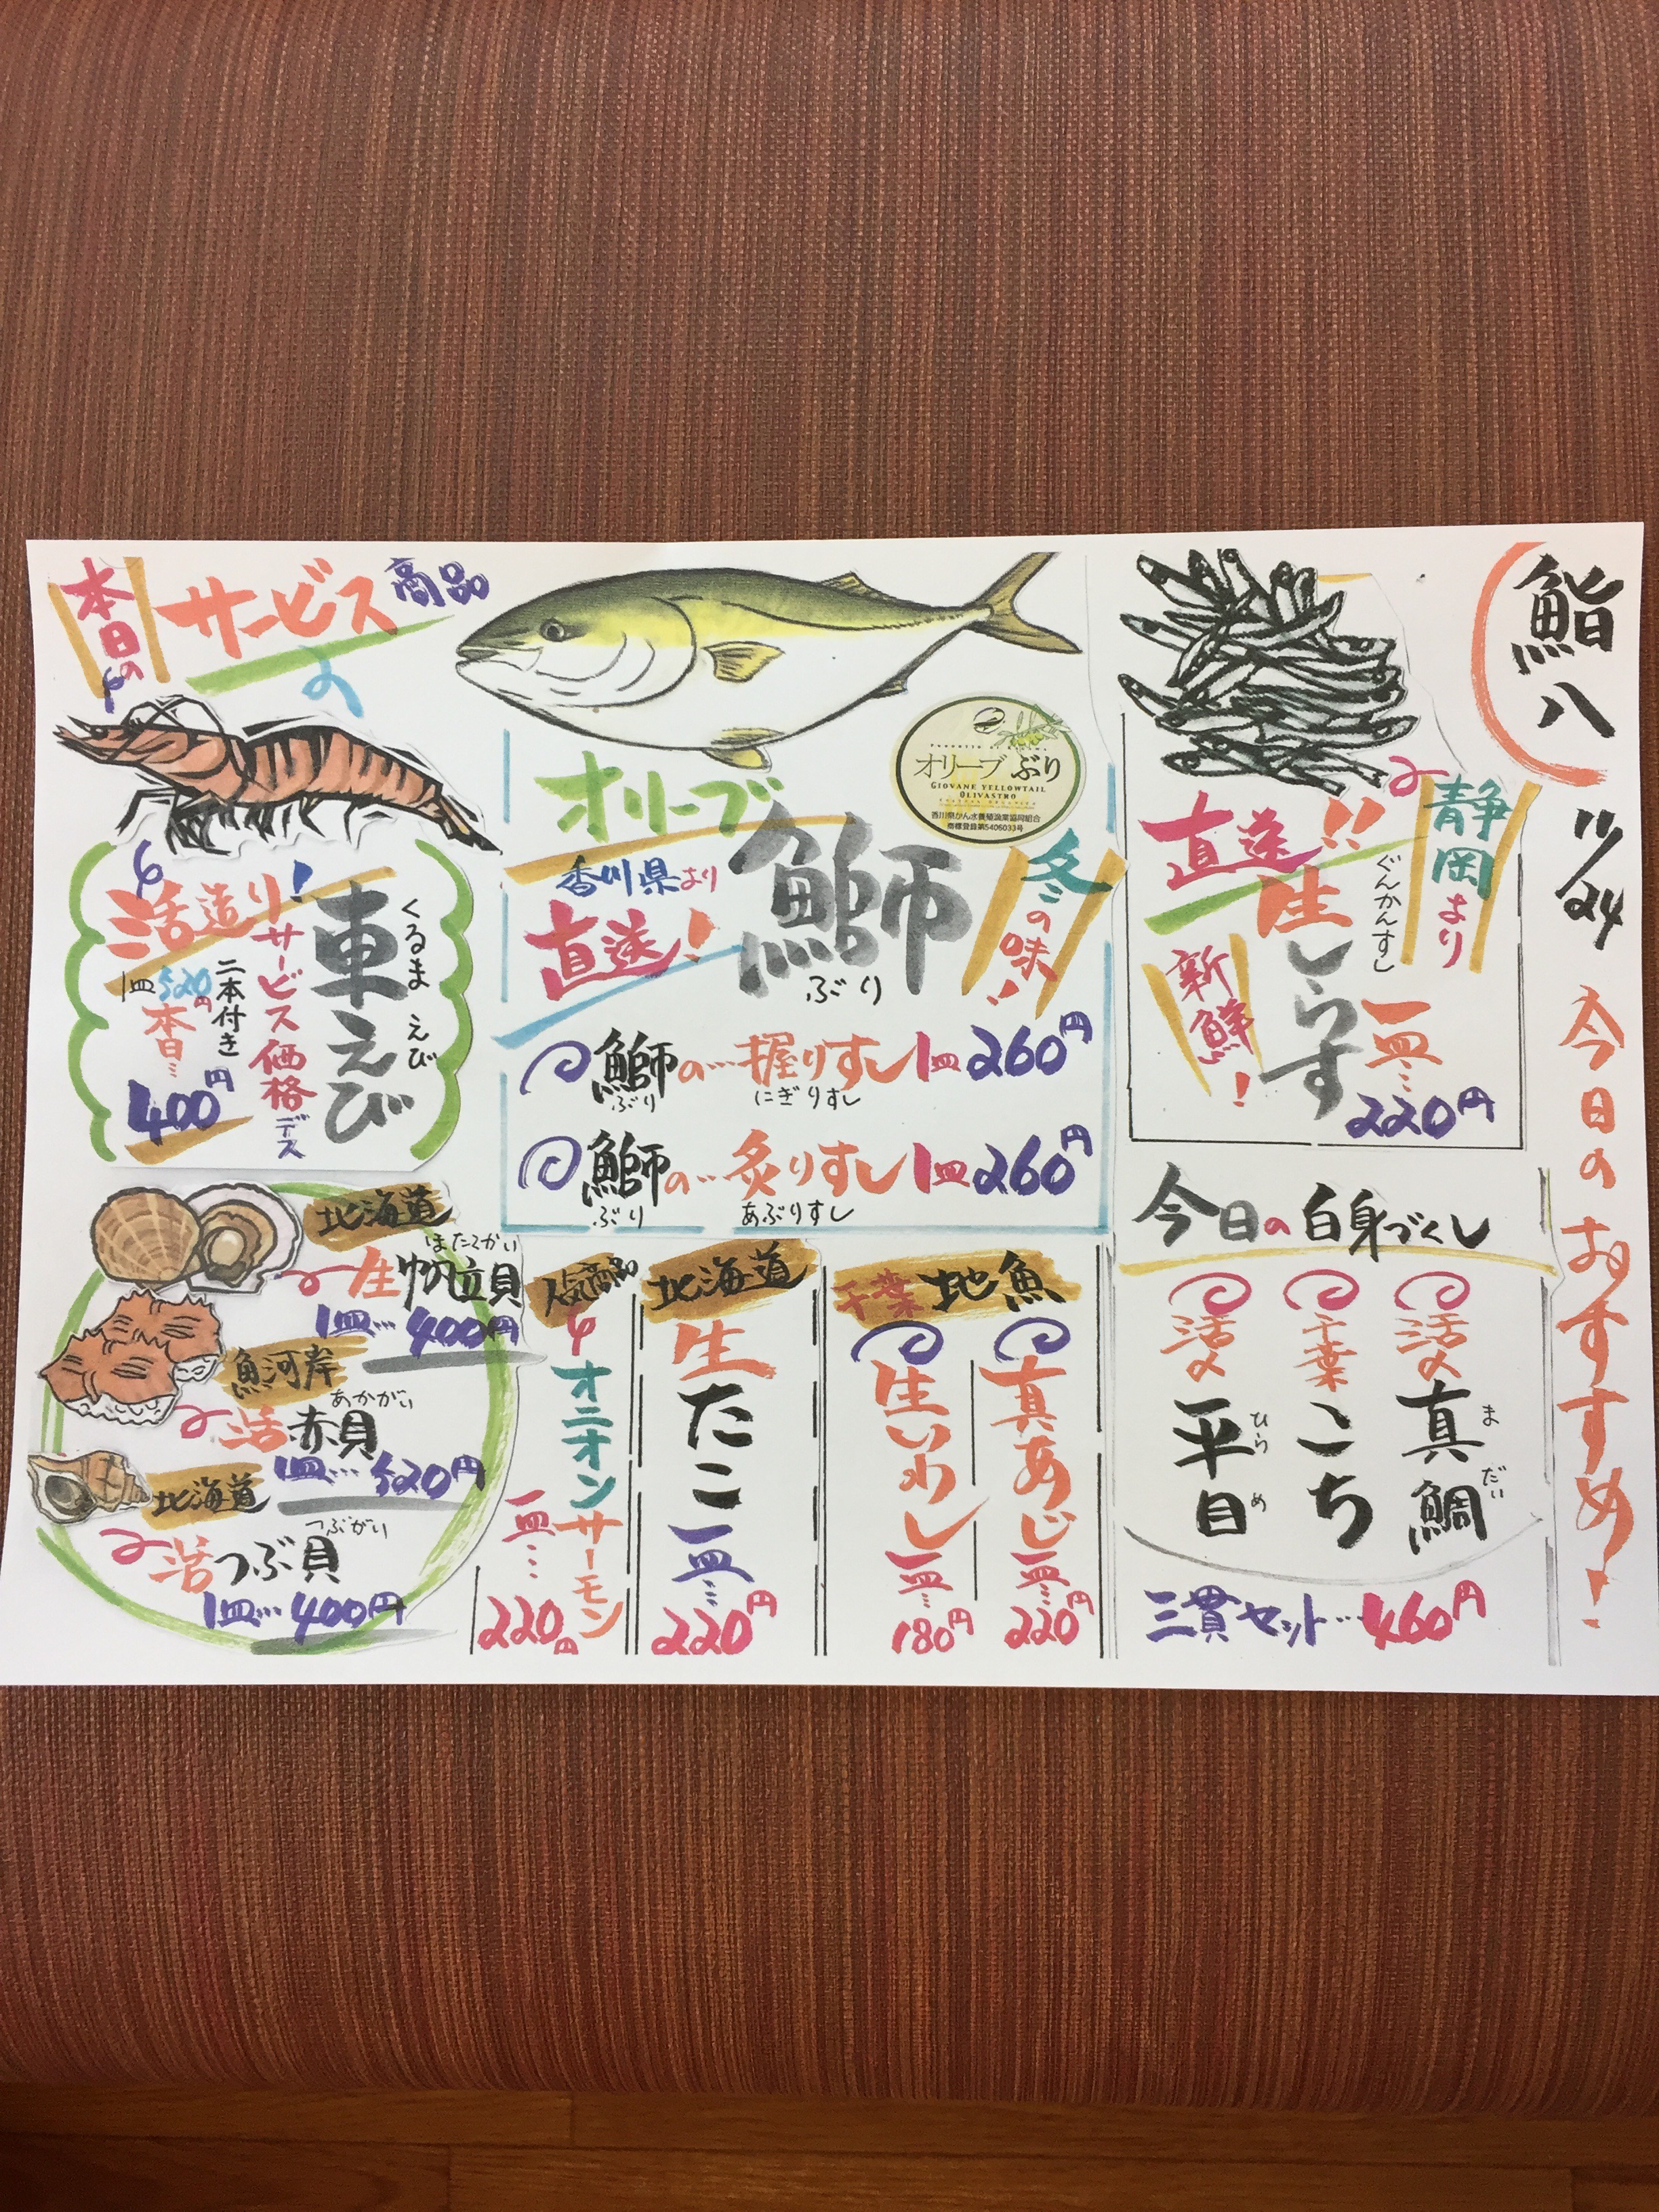 鮨八
11/24
今日のおすすめ!
静岡より
直送!!
ぐんかんすし
生しらす
新鮮!
一皿…220円
今日の白身づくし
活〆真鯛
まだい
千葉こち
活〆平目
ひらめ
三貫セット…460円
オリーブぶり
GIOVANE YELLOWTAIL
OLIVASTRO
香川県かん水養殖漁業協同組合
商標登録第5406033号
冬の味!
オリーブ
鰤
ぶり
香川県より
直送!
鰤の…握りすし1皿260円
ぶり にぎりすし
鰤の…炙りすし1皿260円
ぶり あぶりすし
千葉 地魚
真あじ一皿…220円
生いわし一皿…180円
北海道
生たこ一皿…220円
人気商品
オニオンサーモン
一皿…220円
本日の
サービス商品
車えび
くるまえび
活造り!
サービス価格デス
二本付き
1皿520円
本日…
400円
北海道
ほたてがい
生帆立貝
1皿…400円
魚河岸
あかがい
活赤貝
1皿…520円
北海道
つぶがい
活つぶ貝
1皿…400円